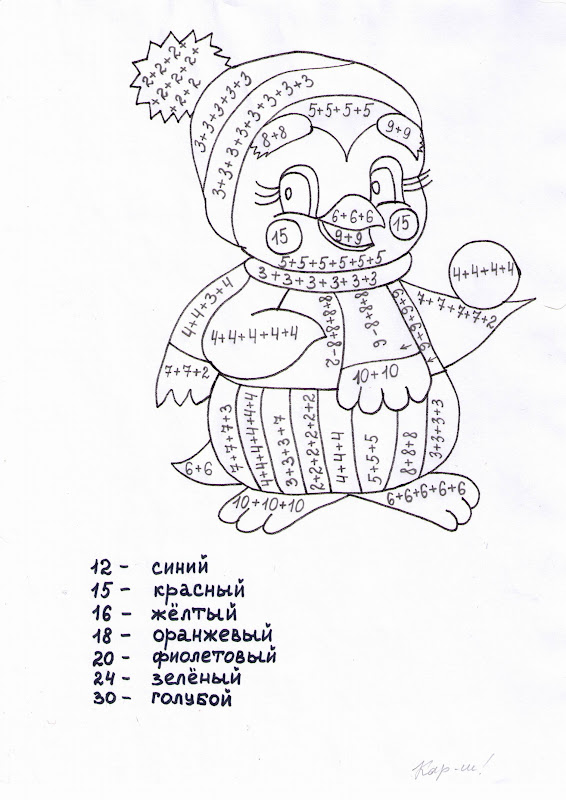 2+2+2+
+2+2+2+
+2+2
3+3+3+3+3
3+3+3+3+3+3+3+3
5+5+5+5
8+8
9+9
6+6+6
15
9+9
15
5+5+5+5+5+5
3+3+3+3+3+3
4+4+4+4
4+4+3+4
4+4+4+4+4
8+8+8+8-2
8+8+8-6
6+6+6+6
7+7+7+7+2
7+7+2
10+10
7+7+7+3
4+4+4+4+4+4
3+3+3+7
2+2+2+2+2+2
4+4+4
5+5+5
8+8+8
3+3+3+3
6+6
10+10+10
6+6+6+6+6
12 - синий
15 - красный
16 - жёлтый
18 - оранжевый
20 - фиолетовый
24 - зелёный
30 - голубой
Кар-ш!